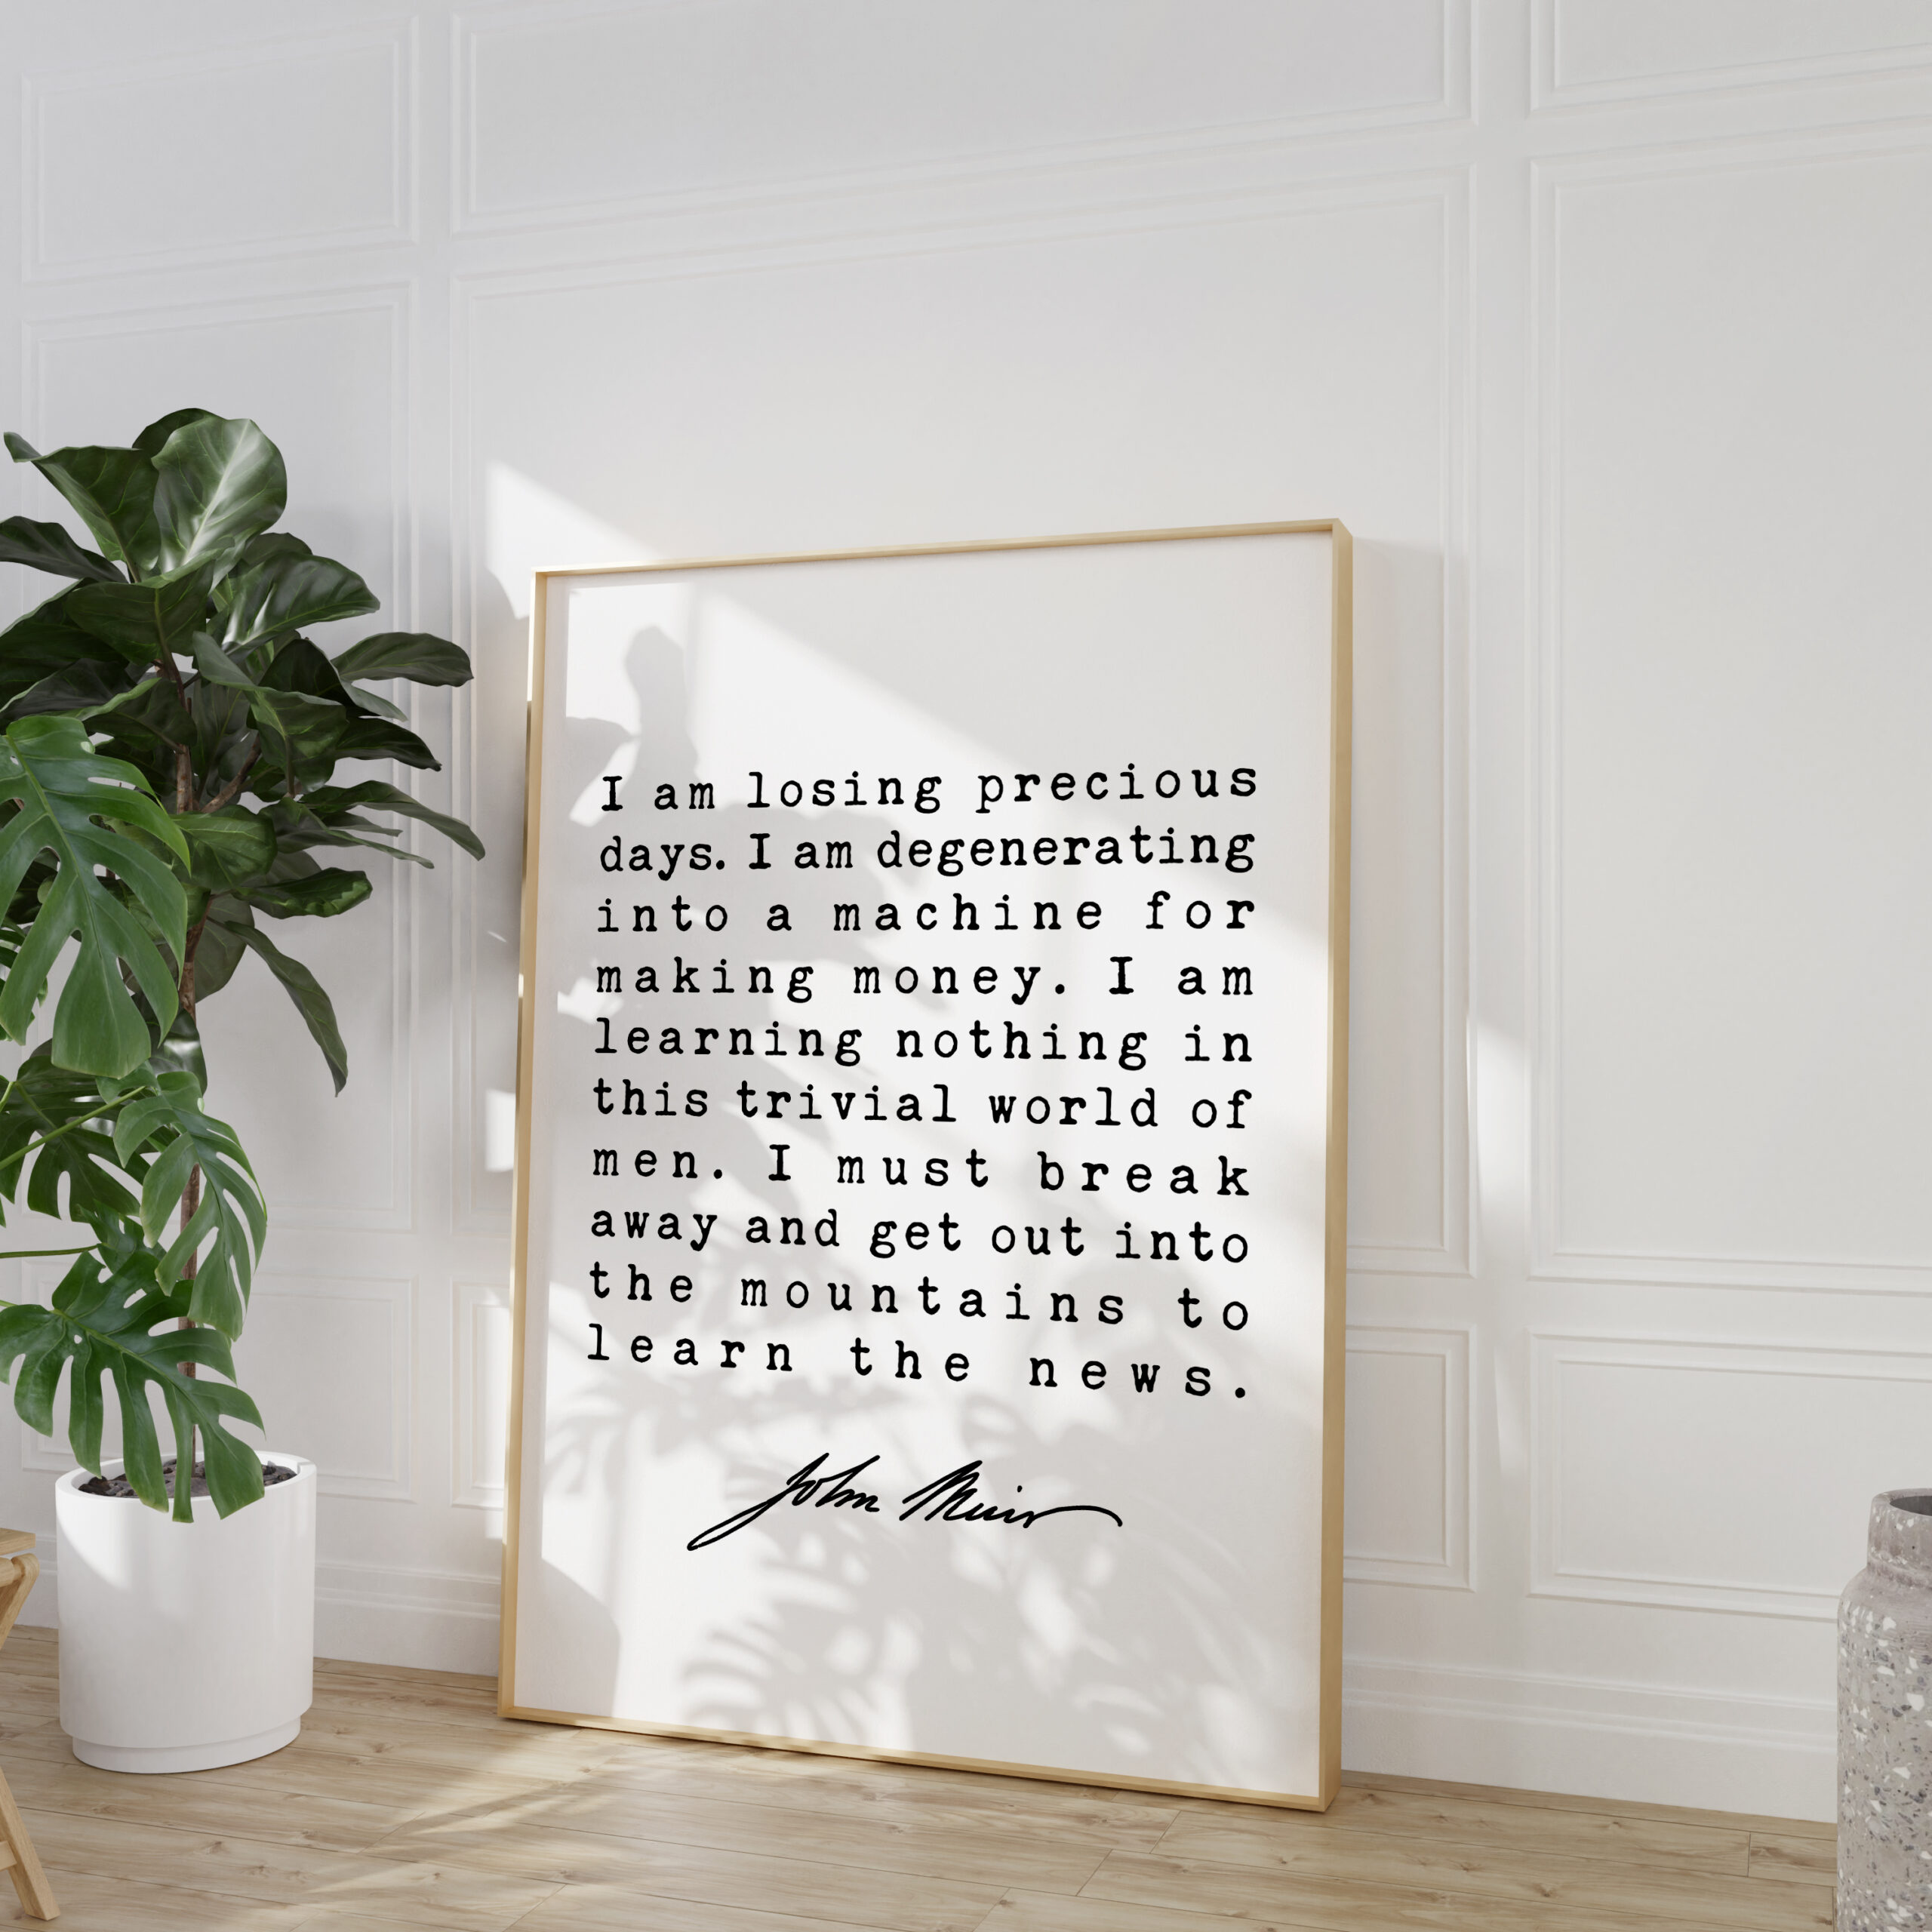 I am losing precious
days. I am degenerating
into a machine for
making money. I am
learning nothing in
this trivial world of
men. I must break
away and get out into
the mountains to
learn the news.
John Muir